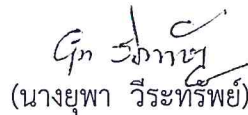 (นางยุพา วีระทรัพย์)